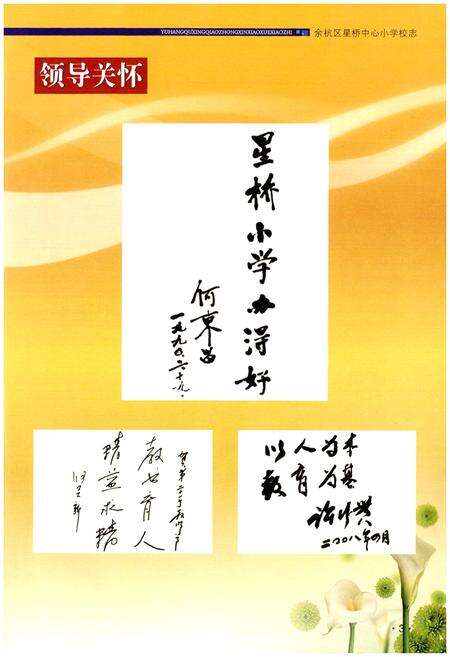 YUHANGQUXINGQIAOZHONGXINXIAOXUEXIAOZHI
余杭区星桥中心小学校志
领导关怀
星桥小学办得好
何东昌
一九九〇.六.十九.
教书育人
精益求精
以人为本
教育为基
二〇〇八年四月
· 3 ·